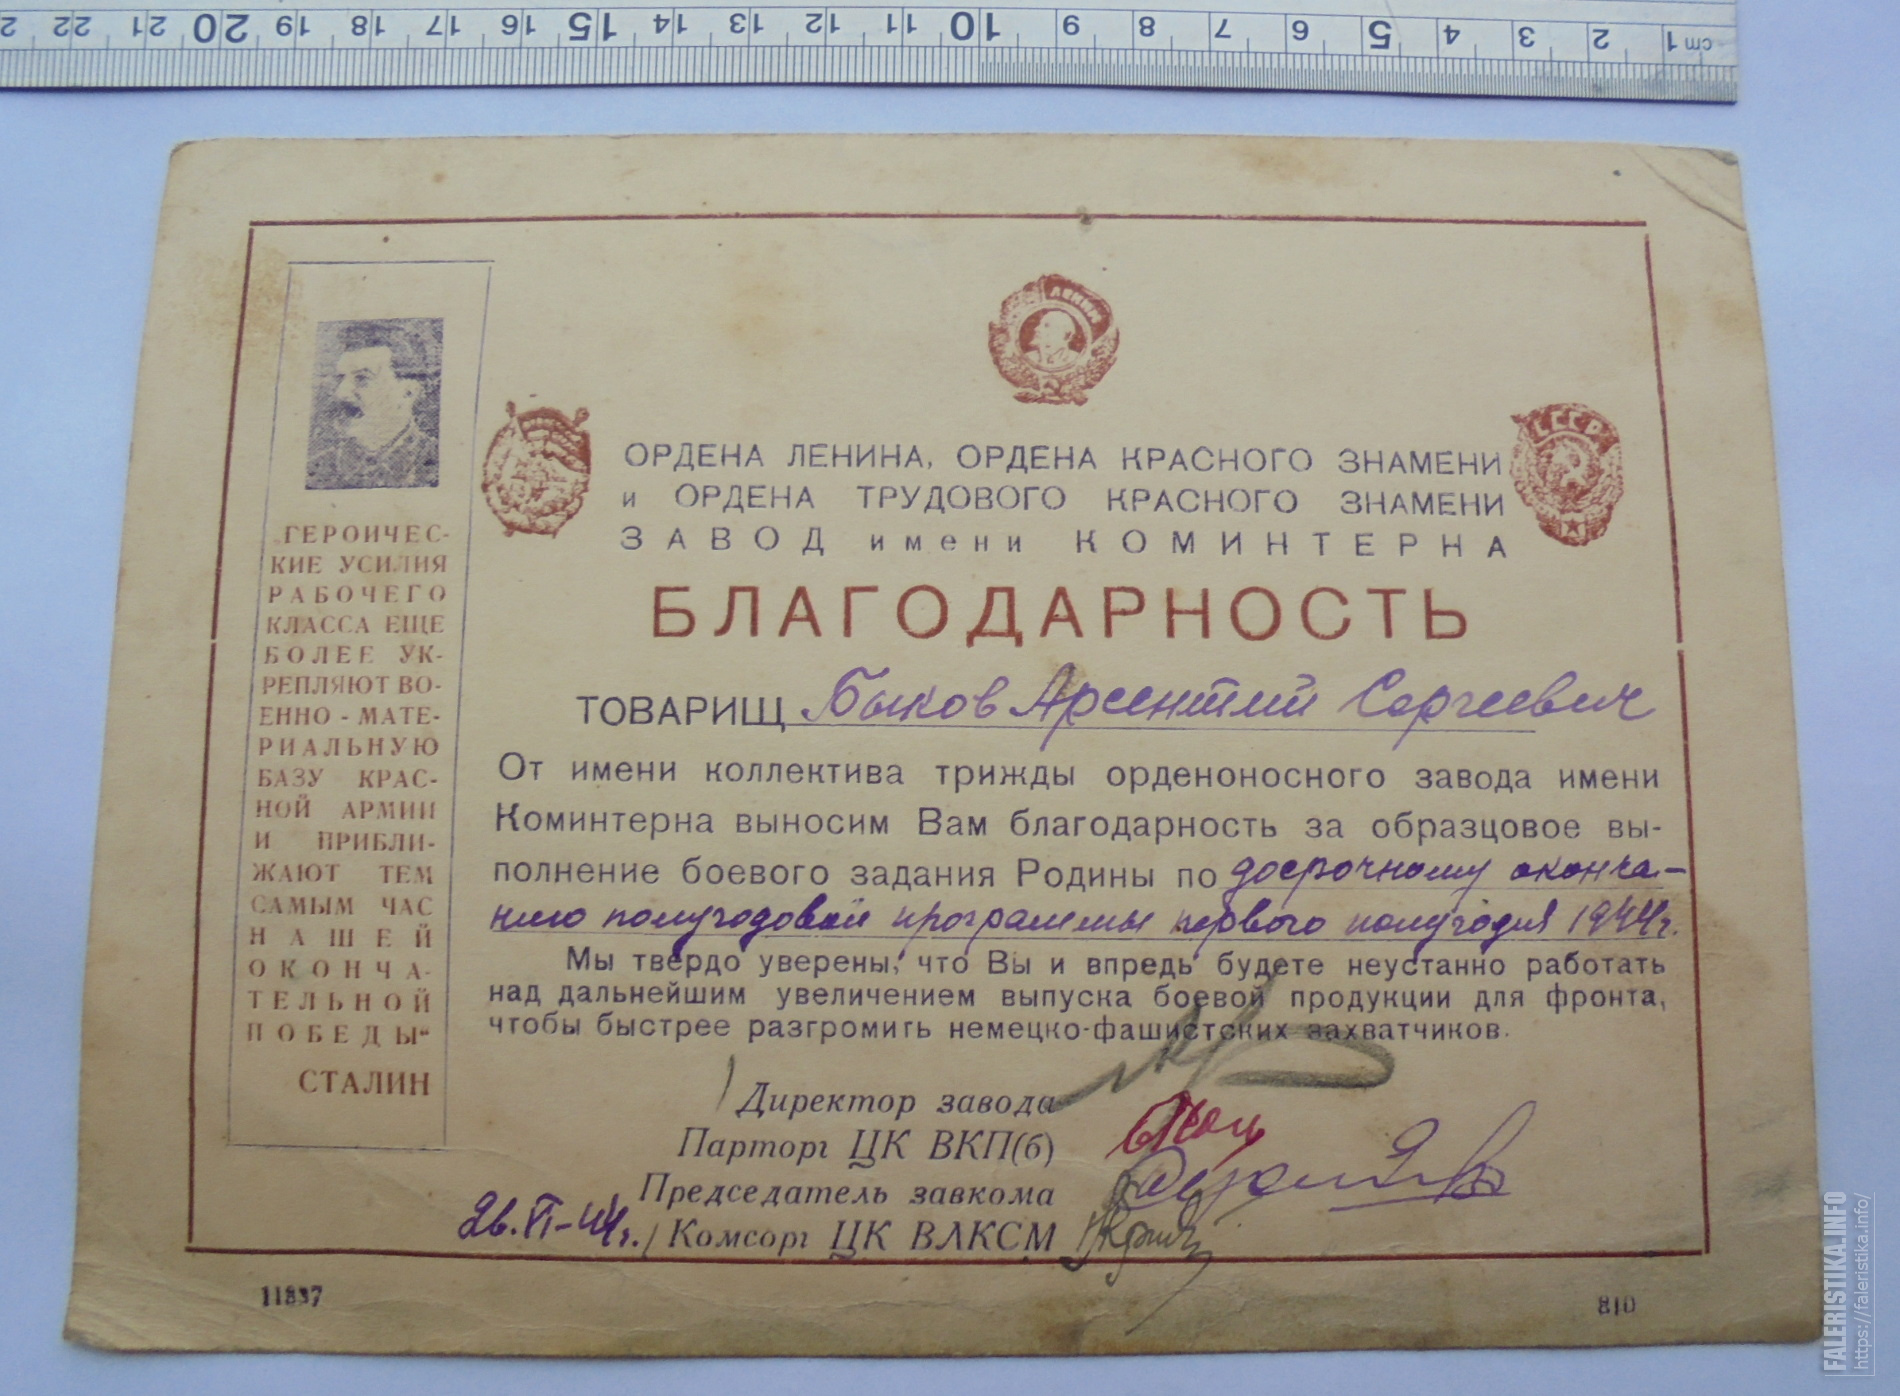 1 cm 2 3 4 5 6 7 8 9 10 11 12 13 14 15 16 17 18 19 20 21 22 2
ЛЕНИН
СССР
ОРДЕНА ЛЕНИНА, ОРДЕНА КРАСНОГО ЗНАМЕНИ
и ОРДЕНА ТРУДОВОГО КРАСНОГО ЗНАМЕНИ
ЗАВОД имени КОМИНТЕРНА
БЛАГОДАРНОСТЬ
ТОВАРИЩ Быков Арсентий Сергеевич
От имени коллектива трижды орденоносного завода имени
Коминтерна выносим Вам благодарность за образцовое вы-
полнение боевого задания Родины по досрочному оконча-
нию полугодовой программы первого полугодия 1944г.
Мы твердо уверены, что Вы и впредь будете неустанно работать
над дальнейшим увеличением выпуска боевой продукции для фронта,
чтобы быстрее разгромить немецко-фашистских захватчиков.
Директор завода
Парторг ЦК ВКП(б)
Председатель завкома
26.VI-44г. Комсорг ЦК ВЛКСМ
ГЕРОИЧЕС-
КИЕ УСИЛИЯ
РАБОЧЕГО
КЛАССА ЕЩЕ
БОЛЕЕ УК-
РЕПЛЯЮТ ВО-
ЕННО - МАТЕ-
РИАЛЬНУЮ
БАЗУ КРАС-
НОЙ АРМИИ
И ПРИБЛИ-
ЖАЮТ ТЕМ
САМЫМ ЧАС
НАШЕЙ
ОКОНЧА-
ТЕЛЬНОЙ
ПОБЕДЫ"
СТАЛИН
11837
810
FALERISTIKA.INFO
https://faleristika.info/